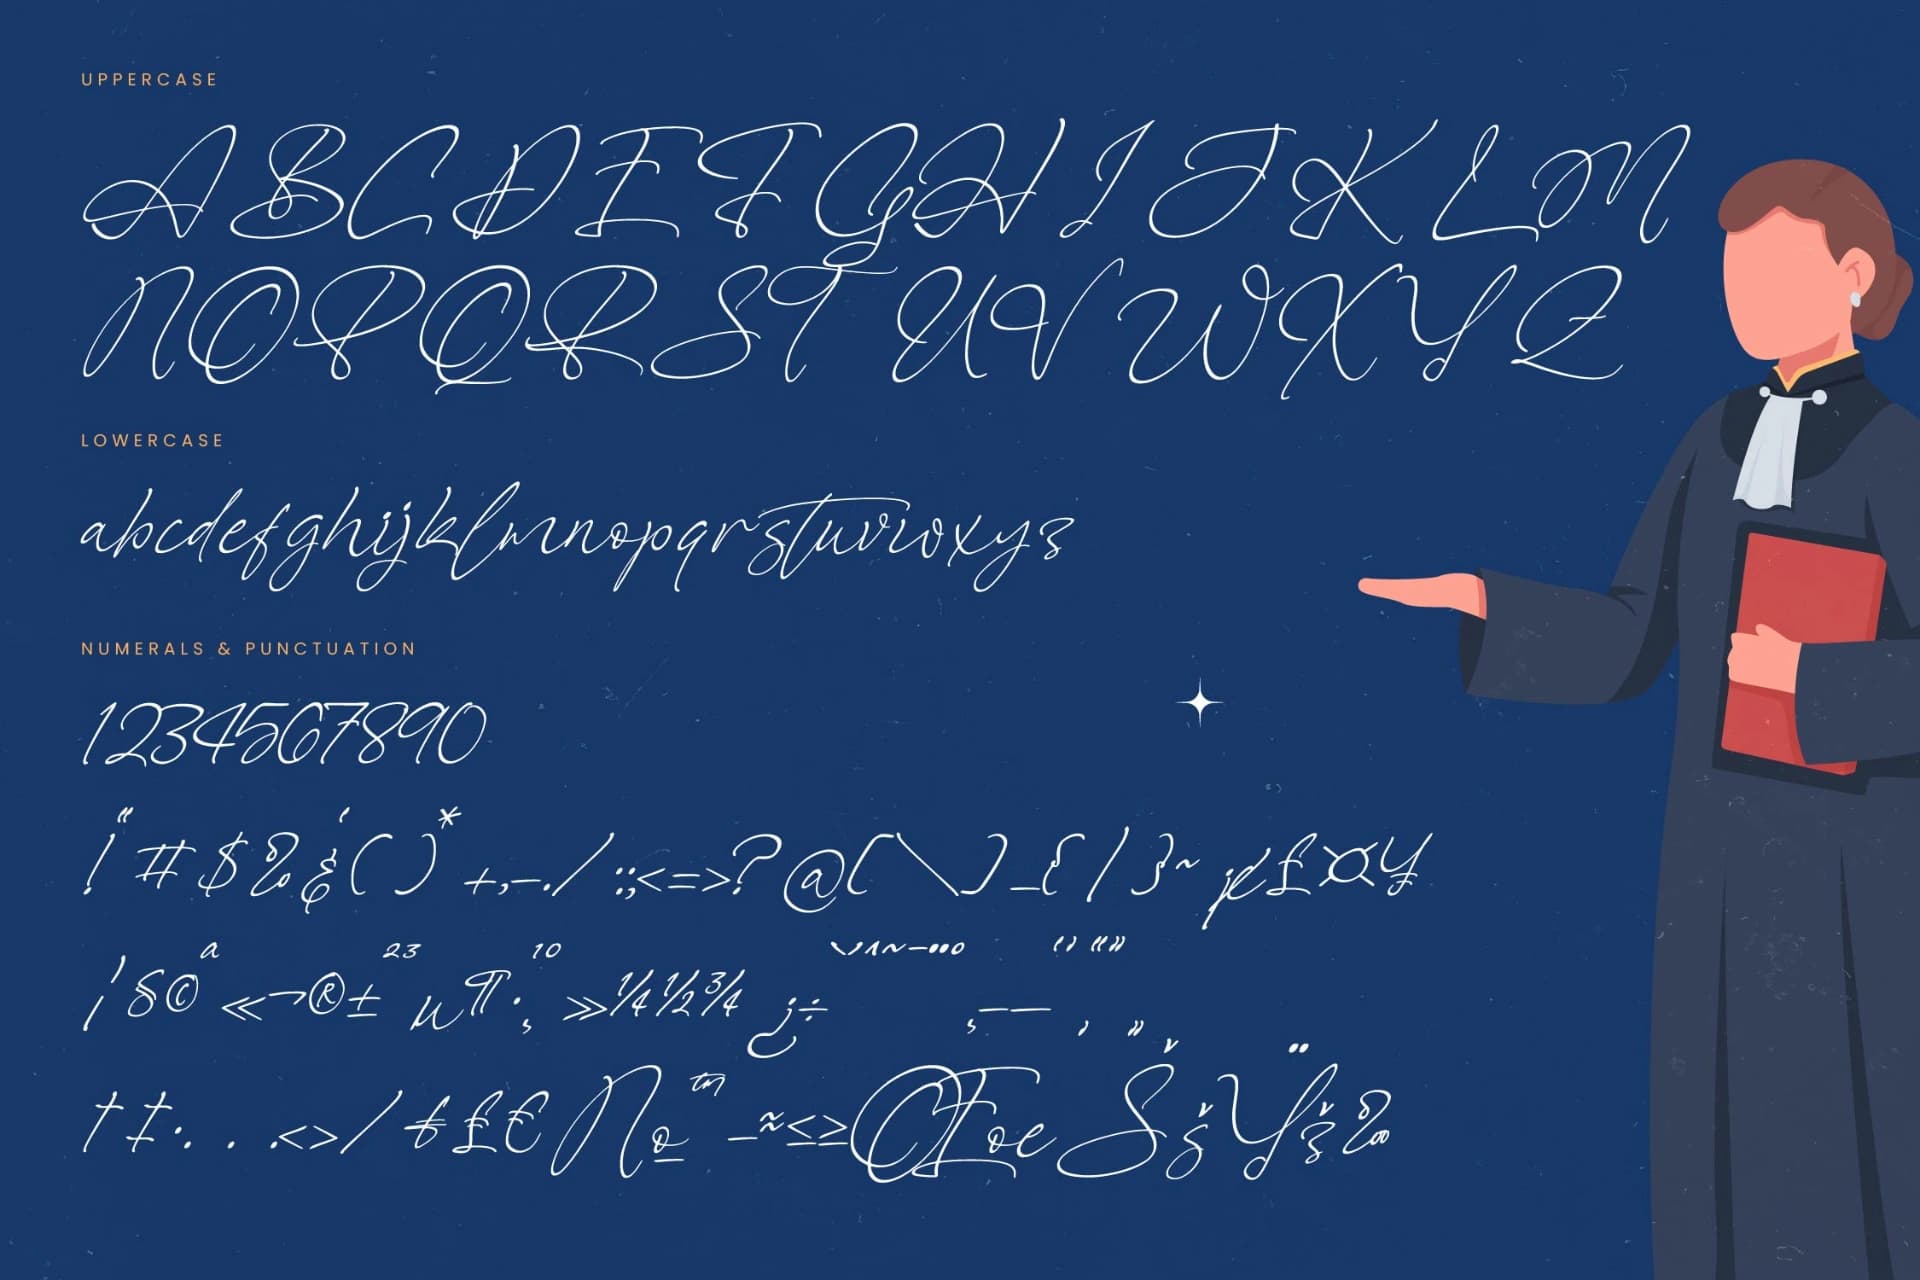 UPPERCASE
A B C D E F G H I J K L M
N O P Q R S T U V W X Y Z
LOWERCASE
abcdefghijklmnopqrstuvwxyz
NUMERALS & PUNCTUATION
1234567890
! " # $ % & ' ( ) * + , - . / : ; < = > ? @ [ \ ] _ { | } ~ ¢ £ ¤ ¥
¦ § © ª « ¬ ® ± ² ³ µ ¶ · ¸ ¹ º » ¼ ½ ¾ ¿ ÷ ‚ – — ‘ ’ “ ” , „
† ‡ • . . . < > / £ € № ™ − ≈ ≤ ≥ Œ œ Š š Ÿ ž ‰